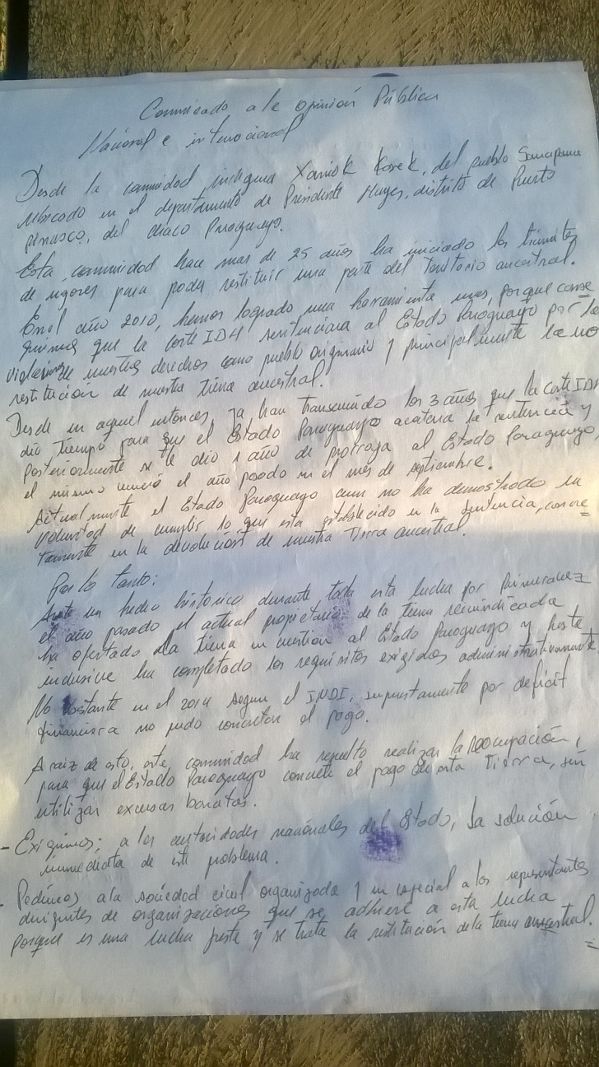 Comunicado a la opinión Pública
Nacional e internacional
Desde la comunidad indígena Xákmok Kásek, del pueblo Sanapana
ubicado en el departamento de Presidente Hayes, distrito de Puerto
Pinasco, del chaco Paraguayo.
Esta comunidad hace mas de 25 años ha iniciado los trámites
de rigores para poder restituir una parte del Territorio ancestral.
En el año 2010, hemos logrado una herramienta mas, porque conse
guimos que la corte IDH sentenciara al Estado Paraguayo por la
violación de nuestros derechos como pueblo originario y principalmente la no
restitución de nuestra tierra ancestral.
Desde en aquel entonces ya han transcurrido los 3 años que la Corte IDH
dio tiempo para que el Estado Paraguayo acatara la sentencia y
Posteriormente se le dio 1 año de prorroga al Estado Paraguayo,
el mismo venció el año pasado en el mes de septiembre.
Actualmente el Estado Paraguayo aun no ha demostrado su
voluntad de cumplir lo que esta establecido en la sentencia, concre=
tamente en la devolución de nuestra Tierra ancestral.
Por lo tanto:
Ante un hecho histórico durante toda esta lucha por primera vez
el año pasado el actual propietario de la tierra reivindicada
ha ofertado la tierra en cuestion al Estado Paraguayo y hasta
inclusive ha completado los requisitos exigidos administrativamente
No obstante en el 2014 segun el INDI, supuestamente por deficit
financiera no pudo concretar el pago.
A raiz de esto, esta comunidad ha resuelto realizar la reocupación,
para que el Estado Paraguayo concrete el pago de esta Tierra, sin
utilizar excusas baratas.
- Exigimos; a las autoridades nacionales del Estado, la solución
inmediata de este problema.
- Pedimos a la sociedad civil organizada y en especial a los representantes
dirigentes de organizaciones que se adhiere a esta lucha
porque es una lucha justa y se trata la restitución de la tierra ancestral.